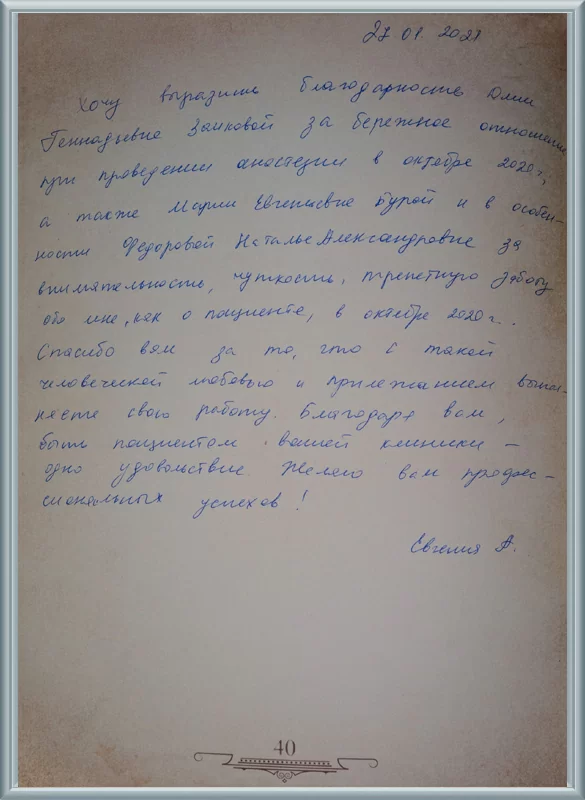 27.01.2021
Хочу выразить благодарность Юлии
Геннадьевне Заиковой за бережное отношение
при проведении анестезии в октябре 2020 г.,
а также Марии Евгеньевне Бурой и в особен-
ности Федоровой Наталье Александровне за
внимательность, чуткость, трепетную заботу
обо мне, как о пациенте, в октябре 2020 г..
Спасибо вам за то, что с такой
человеческой любовью и прилежанием выпол-
няете свою работу. Благодаря вам,
быть пациентом вашей клиники –
одно удовольствие. Желаю вам профес-
сиональных успехов!
Евгения А.
40